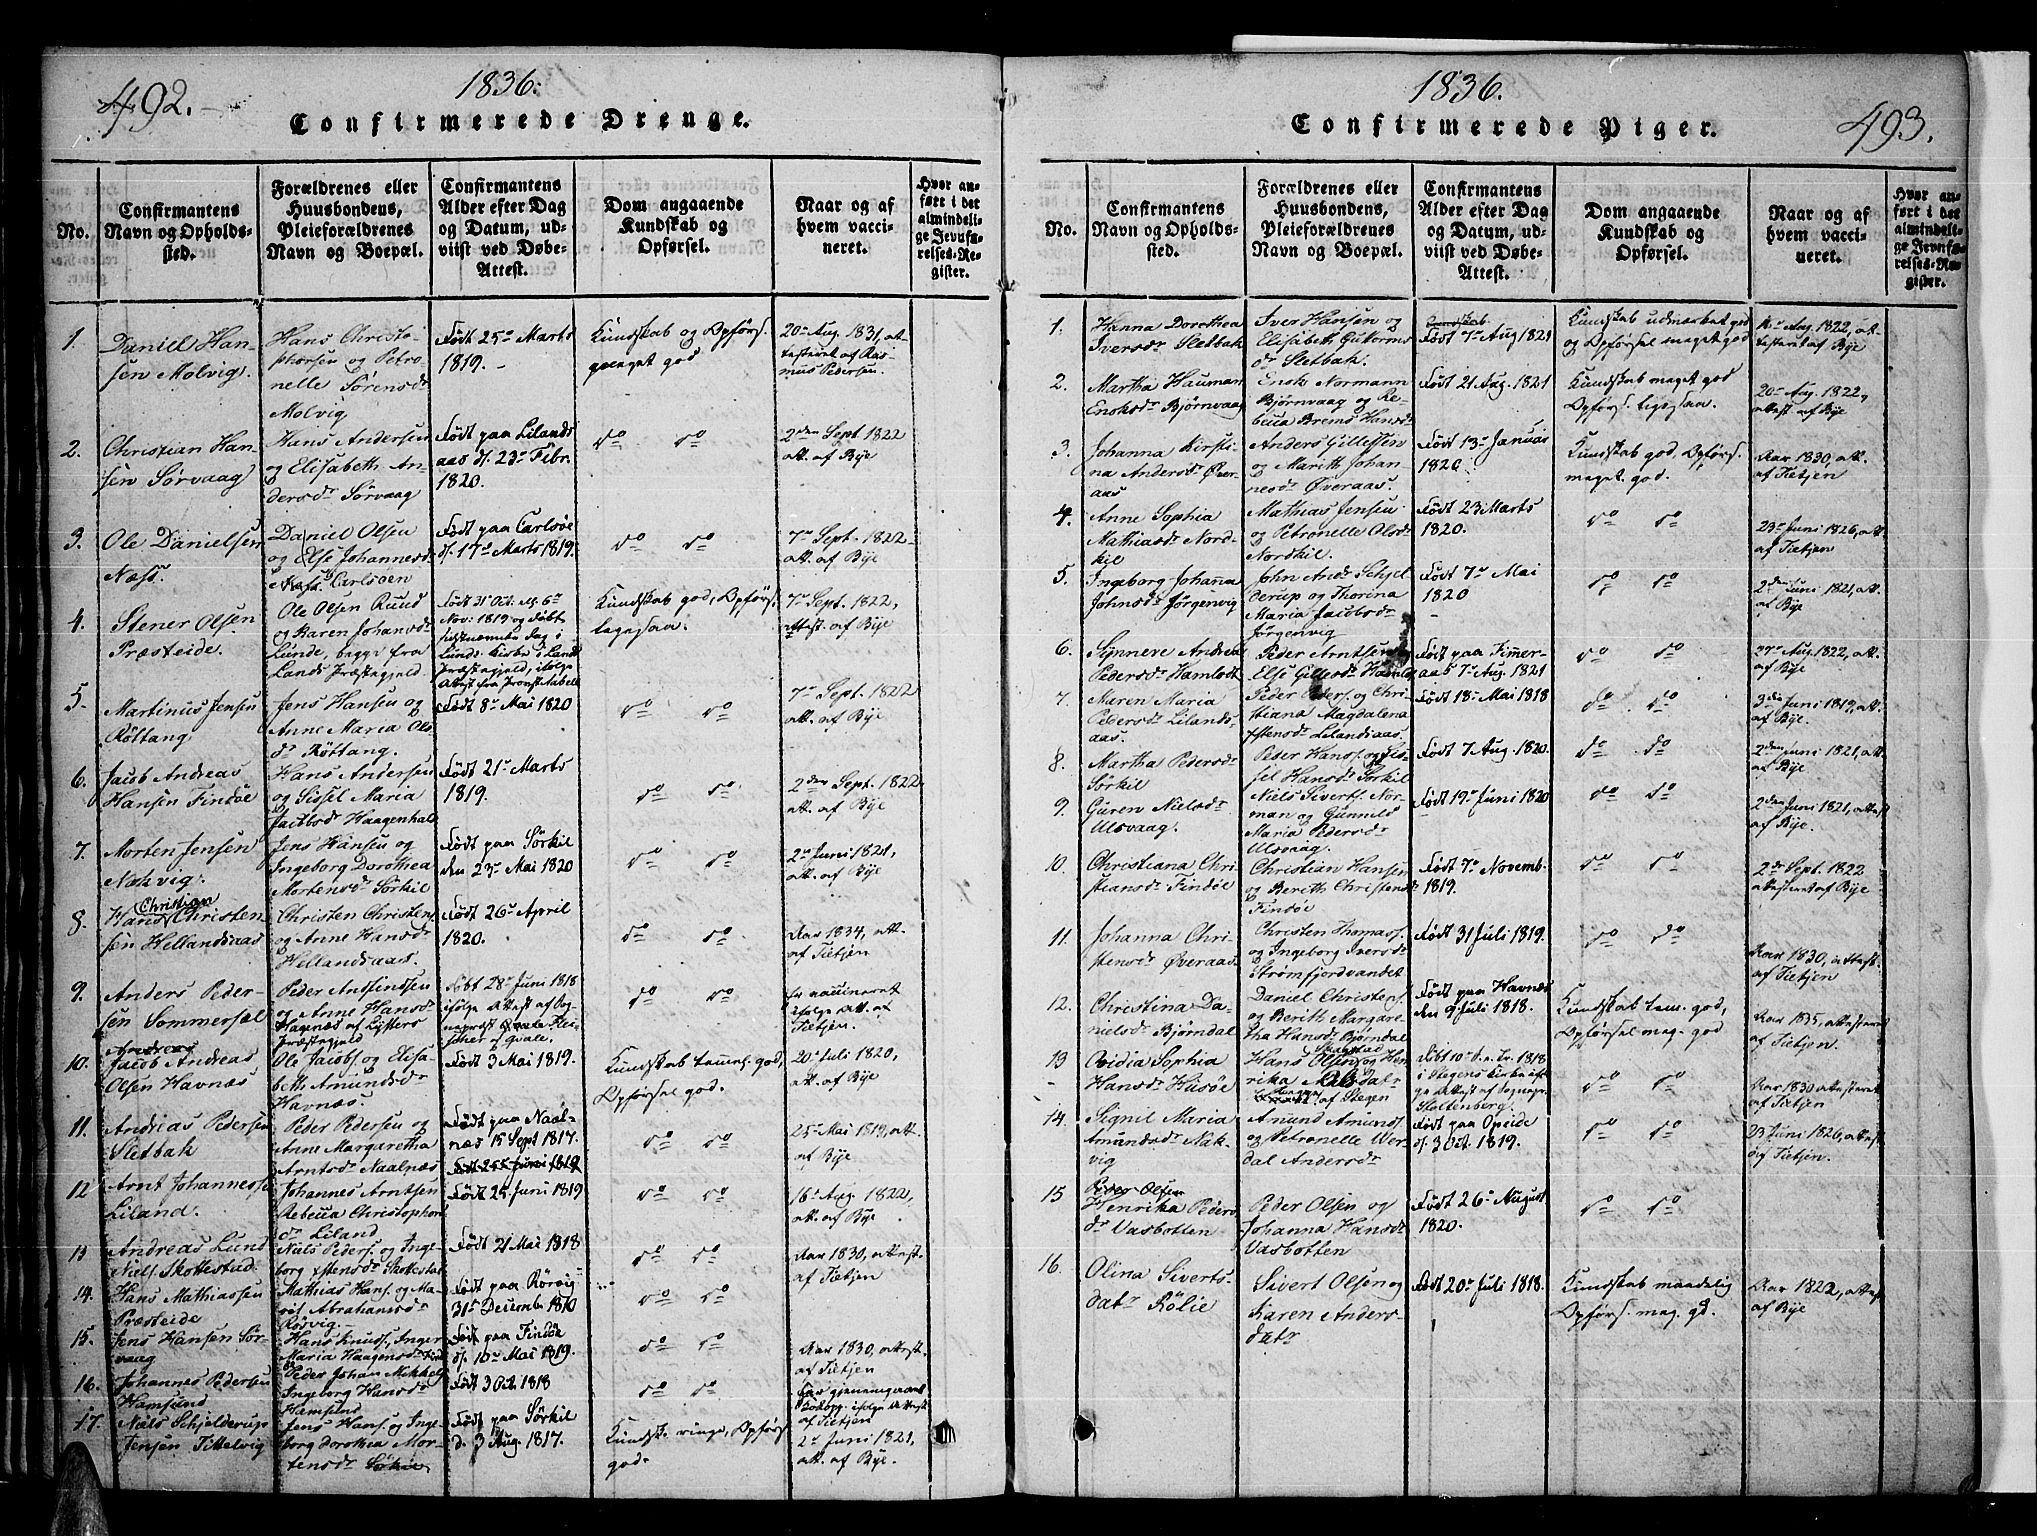 492.
1836.
Confirmerede Drenge.
No.
Confirmantens
Navn og Opholds-
sted.
Forældrenes eller
Huusbondens,
Pleieforældrenes
Navn og Boepæl.
Confirmantens
Alder efter Dag
og Datum, ud-
viist ved Døbe-
Attest.
Dom angaaende
Kundskab og
Opførsel.
Naar og af
hvem vacci-
neret.
Hvor an-
ført i det
almindeli-
ge Jevnfø-
relses-Re-
gister.
1.
Daniell Han-
sen Molvig.
Hans Christo-
phersen og Petro-
nelle Sørensdr
Molvig
Født 25de Marts
1819.
Kundskab og Opførs.
meget god
20de Aug. 1831, at-
testeret af Ras-
mus Pedersen.
2.
Christian Han-
sen Sørvaag
Hans Andersen
og Elisabeth An-
dersdr Sørvaag
Født paa Lilands
aas d. 23de Febr.
1820.
do do
2den Sept. 1822
att. af Bye
3.
Ole Danielsen
Næss.
Daniel Olsen
og Else Johannesdr
Carlsøen
Født paa Carlsøe
d. 17de Marts 1819.
do do
7de Sept. 1822
att. af Bye
4.
Stener Olsen
Præsteide.
Ole Olsen Ruud
og Karen Johansdr
Lunde, begge fra
Lands Præstegjeld
Født 31 Oct. 6te
Nov: 1819 og døbt
sidstnævnte dag i
Lunds Kirke i Lands
Præstegjeld, ifølge
Attest fra Provst Aabell
Kundskab god, Opførs.
ligesaa.
7de Sept. 1822,
attest. af Bye
5.
Martinus Jensen
Røttang
Jens Hansen og
Anne Maria Ols-
dr Røttang.
Født 8de Mai 1820
do do
7de Sept. 1822
att. af Bye
6.
Jacob Andreas
Hansen Findøe
Hans Andersen
og Sissel Maria
Jacobsdr Haagenhals
Født 21de Marts
1819.
do do
2den Sept. 1822.
att. af Bye
7.
Morten Jensen
Nakvig.
Jens Hansen og
Ingeborg Dorothea
Mortensdr Sørkil
Født paa Sørkil
den 23de Mai 1820
do do
2de Juni 1821,
att. af Bye
8.
Christian
Hans Christen-
sen Hellandsaas
Christen Christens.
og Anne Hansdr
Hellandsaas.
Født 26de April
1820.
do do
Aar 1834, att.
af Tietjen
9.
Anders Peder-
sen Sommersæl
Peder Andfindsen
og Anne Hansdr
Hagenæs af Lysters
Præstegjeld
Døbt 28de Juni 1818
ifølge Attest af Sog-
nepræst Qvale
do do
er vaccineret
ifølge att. af
Tietjen.
10.
Andreas
Jacob Andreas
Olsen Havnæs
Ole Jacobs. og Elisa-
beth Amundsdr
Havnæs.
Født 3 Mai 1819.
Kundskab temmel. god,
Opførsel god.
20de Juli 1820,
att. af Bye
11.
Andreas Pedersen
Sletbak
Peder Pedersen og
Anne Margaretha
Arntsdr Naalnæs
Født paa Naal-
næs 15 Sept 1817.
do do
25de Mai 1819, att.
af Bye
12
Arnt Johannessen
Liland.
Johannes Arntsen
Rebecca Christophers
dr Liland
Født 25de Juni 1819
Født 25 Juni 1819
do do
16de Aug. 1822,
att. af Bye
13
Andreas Lund
Niels. Skottestad.
Niels Peders. og Inge-
borg Estensdr Skottestad
Født 21 Mai 1818
do do
Aar 1830, attest.
af Tietjen
14.
Hans Mathiassen
Præsteide
Mathias Hans. og Ma-
rit Abrahamsdr
Rørvig.
Født paa Rørvig
31te Decemb. 1810
do do
15.
Jens Hansen Sør-
vaag
Hans Knuds., Inger
Maria Haagensdr
Født paa Findøe
d. 10de Mai 1819.
do do
Aar 1830, attest.
af Tietjen
16.
Johannes Pedersen
Hamsund
Peder Johan Mikkels
Ingeborg Hansdr
Hamsund
Født 3 Oct. 1818
do do
har gjennemgaaet
ifølge Attest
af Tietjen
17.
Niels Schjelderup
Jensen Tittelvig
Jens Hans. og Inge-
borg Dorothea Mor-
tensdr Sørkil
Født paa Sørkil
d. 3 Aug. 1817.
Kundsk. ringe, Opførs.
god.
2de Juni 1821,
att. af Bye.
1836.
493.
Confirmerede Piger.
No.
Confirmantens
Navn og Opholds-
sted.
Forældrenes eller
Huusbondens,
Pleieforældrenes
Navn og Boepæl.
Confirmantens
Alder efter Dag
og Datum, ud-
viist ved Døbe-
Attest.
Dom angaaende
Kundskab og
Opførsel.
Naar og af
hvem vacci-
neret.
Hvor an-
ført i det
almindeli-
ge Jevnfø-
relses-Re-
gister.
1.
Hanna Dorothea
Iversdr Sletbak
Iver Hansen og
Elisabeth Gutorms
dr Sletbak
Kundskab
Født 7de Aug 1821
Kundskab udmærket god
og Opførsel meget god
16de Aug. 1822, at-
testeret af Bye
2.
Martha Hauman
Enoksdr Bjørnvaag
Enok Normann
Bjørnvaag og Re-
becca Brems Hansdr
Født 21 Aug. 1821
Kundskab meget god
Opførs. ligesaa.
20de Aug. 1822,
attest af Bye
3.
Johanna Kirsti-
na Andersdr Øver-
aas
Anders Gillessen
og Marith Johan-
nesdr Øveraas.
Født 13de Januar
1820
Kundskab god, Opførs.
meget god.
Aar 1830, att.
af Tietjen
4.
Anne Sophia
Mathiasdr Nord-
kil
Mathias Jensen
og Petronelle Olsdr
Nordkil.
Født 23 Marts
1820.
do do
23de Juni 1826, att.
af Tietjen
5.
Ingeborg Johanna
Johnsdr Jørgenvig
John Andr. Schjel-
derup og Thorina
Maria Jacobsdr
Jørgenvig
Født 7de Mai
1820
do do
2den Juni 1821, att.
af Bye
6.
Synneve Andrea
Pedersdr Hamlodt
Peder Arntsen og
Else Gillesdr Hamlodt
Født paa Timer-
aas 7de Aug. 1821
do do
27de Aug. 1822, att.
af Bye
7.
Maren Maria
Pedersdr Lilands-
aas.
Peder Peders. og Chri-
stiana Magdalena
Estensdr Lilandsaas.
Født 18de Mai 1818
do do
3die Juni 1819, att.
af Bye.
8.
Martha Pedersdr
Sørkil
Peder Hans. og Sis-
sel Hansdr Sørkil
Født 7 Aug. 1820.
do do
2den Juni 1821, att.
af Bye
9.
Guren Nielsdr
Ulsvaag.
Niels Siverts. Nor-
man og Gunnild
Maria Pedersdr
Ulsvaag.
Født 19de Juni 1820
do do
2den Juni 1821, att.
af Bye.
10.
Christiana Chri-
stiansdr Findøe
Christian Hansen
og Berith Christensdr
Findøe
Født 7de Novemb.
1819.
do do
2de Sept. 1822
attesteret af Bye
11.
Johanna Chri-
stensdr Øveraas
Christen Thomass.
og Ingeborg Iversdr
Strømfjordvandet
Født 31 Juli 1819.
do do
Aar 1830, attest.
af Tietjen
12.
Christina Da-
nielsdr Bjørndal
Daniel Christens.
og Berith Margare-
tha Hansdr Bjørndal
Født paa Havnæs
den 9 Juli 1818.
Kundskab tem. god,
Opførsel meg. god
Aar 1835, attesteret
af Tietjen.
13
Ovidia Sophia
Hansdr Husøe
Hans Olsen og Hen-
rika Malsdal
af Stegen
Døbt 10de S. e. Tr. 1818
i Stegens Kirke iføl-
ge Attest af Sognepr.
Stoltenberg.
do do
Aar 1830 attesteret
af Tietjen
14.
Signil Maria
Amundsdr Nak-
vig
Amund Amunds.
og Petronelle Wer-
dal Andersdr
Født paa Opeide
d. 3 Oct. 1819.
do do
23 Juni 1826, attest.
af Tietjen.
15
Peder Olsen
Henrika Peders-
dr Vasbotten
Peder Olsen og
Johanna Hansdr
Vasbotten
Født 26de August
1820.
do do
16.
Olina Siverts-
datr Rølie
Sivert Olsen og
Karen Anders-
datr
Født 20de Juli 1818.
Kundskab maadelig
Opførs. meg. gd.
Aar 1822, attest.
af Bye